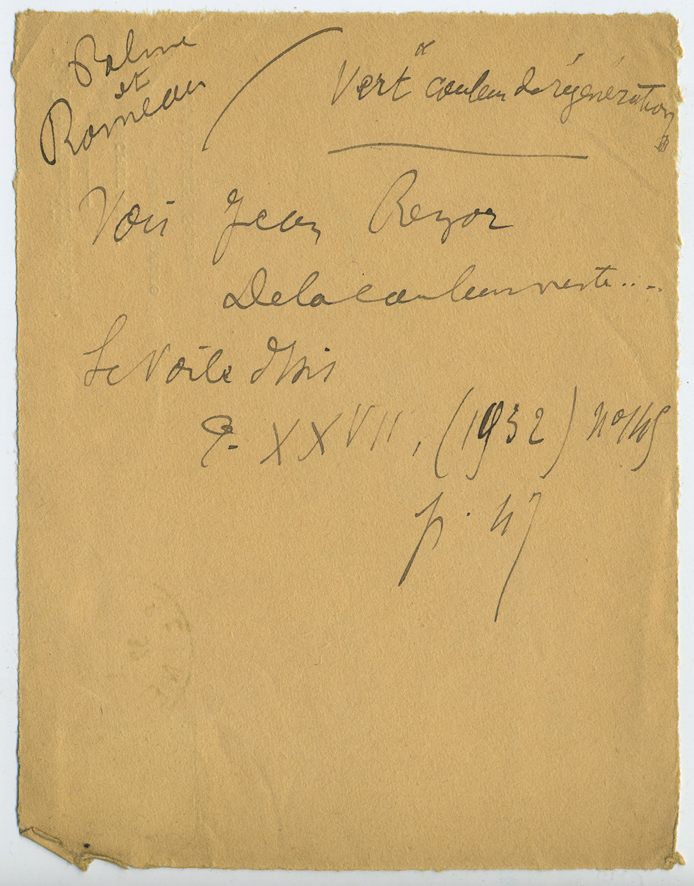 Palme
et
Rameau
Vert " couleur de régénération "
Voir Jean Reyor
De la couleur verte....
Le Voile d'Isis
T. XXXVII, (1932) n° 145
p. 47